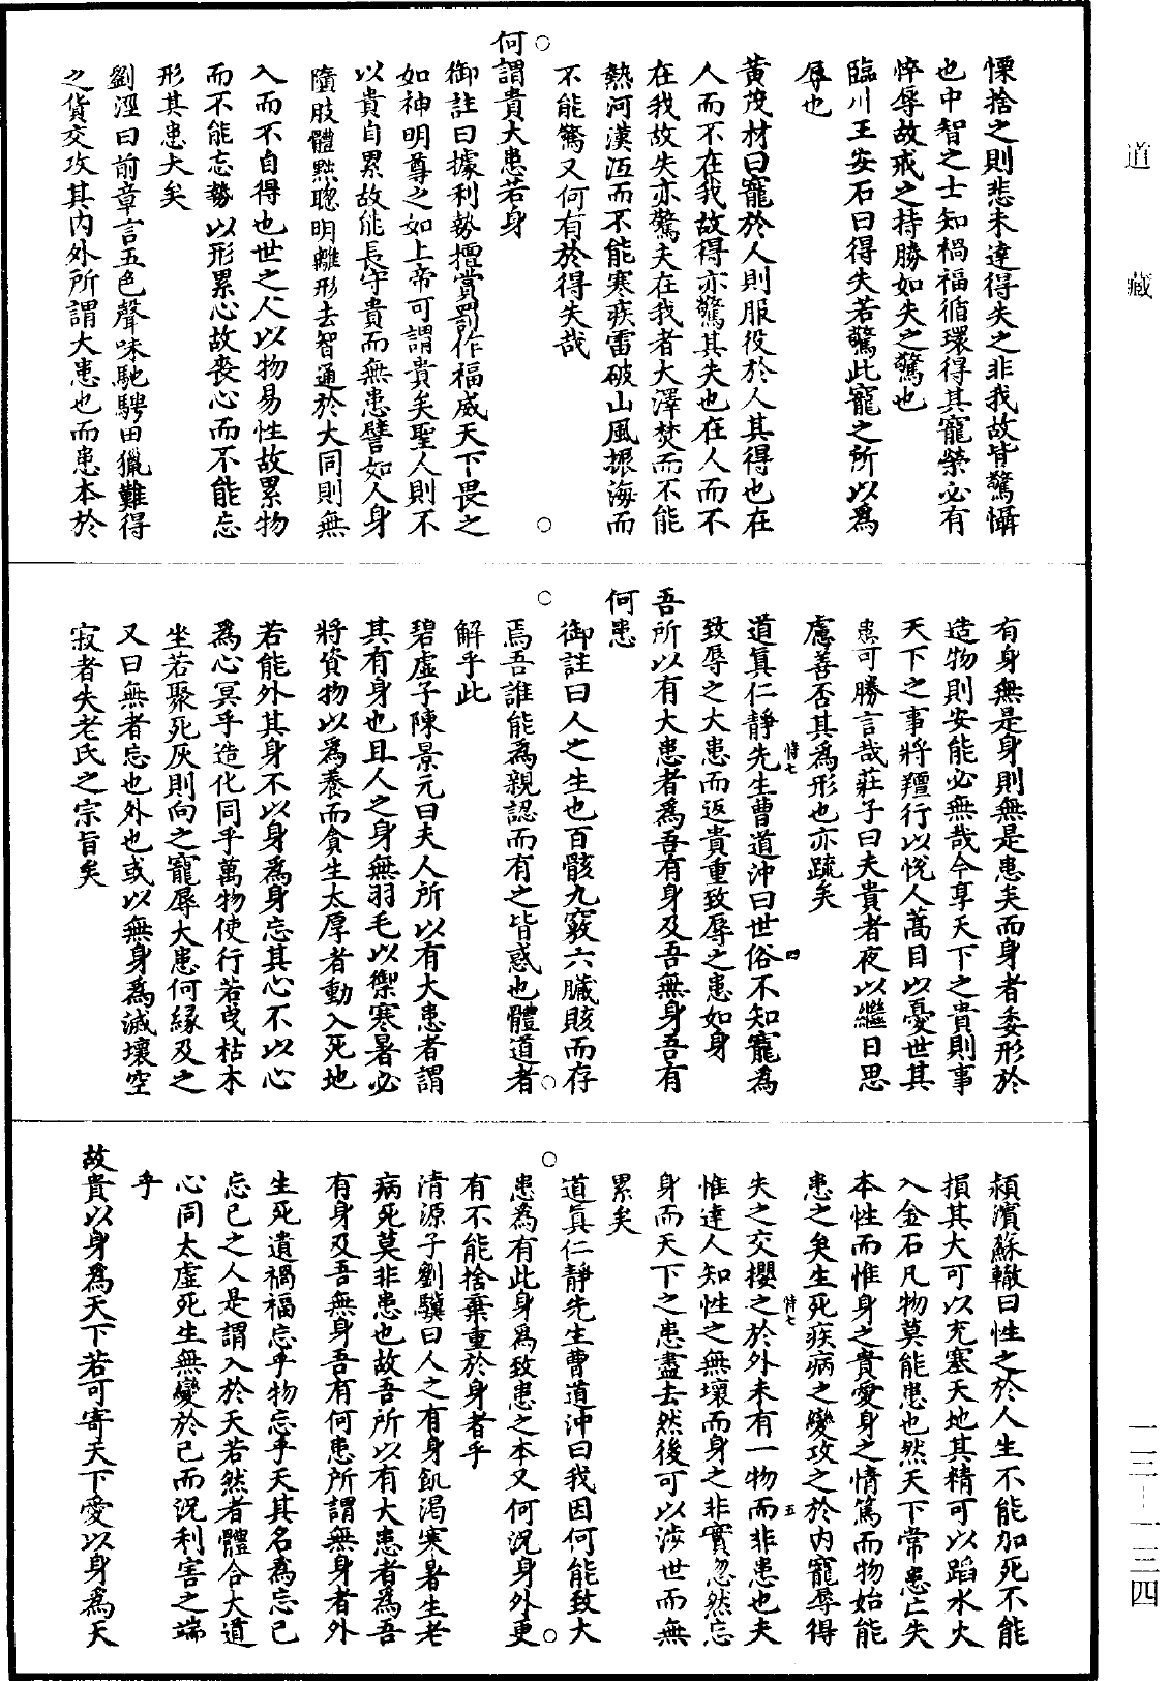 慄捨之則悲未達得失之非我故皆驚懾
也中智之士知禍福循環得其寵榮必有
悴辱故戒之持勝如失之驚也
臨川王安石曰得失若驚此寵之所以為
辱也
黃茂材曰寵於人則服役於人其得也在
人而不在我故得亦驚其失也在人而不
在我故失亦驚夫在我者大澤焚而不能
熱河漢沍而不能寒疾雷破山風振海而
不能驚又何有於得失哉
何謂貴大患若身
御註曰據利勢擅賞罰作福威天下畏之
如神明尊之如上帝可謂貴矣聖人則不
以貴自累故能長守貴而無患譬如人身
隳肢體黜聰明離形去智通於大同則無
入而不自得也世之人以物易性故累物
而不能忘勢以形累心故喪心而不能忘
形其患大矣
劉涇曰前章言五色聲味馳騁田獵難得
之貨交攻其內外所謂大患也而患本於
有身無是身則無是患矣而身者委形於
造物則安能必無哉今享天下之貴則事
天下之事將羶行以悅人蒿目以憂世其
患可勝言哉莊子曰夫貴者夜以繼日思
慮善否其為形也亦疏矣
道真仁靜先生曹道沖曰世俗不知寵為
恃七
四
致辱之大患而返貴重致辱之患如身
吾所以有大患者為吾有身及吾無身吾有
何患
御註曰人之生也百骸九竅六臟賅而存
焉吾誰能為親認而有之皆惑也體道者
解乎此
碧虛子陳景元曰夫人所以有大患者謂
其有身也且人之身無羽毛以禦寒暑必
將資物以為養而貪生太厚者動入死地
若能外其身不以身為身忘其心不以心
為心冥乎造化同乎萬物使行若曳枯木
坐若聚死灰則向之寵辱大患何緣及之
又曰無者忘也外也或以無身為滅壞空
寂者失老氏之宗旨矣
潁濱蘇轍曰性之於人生不能加死不能
損其大可以充塞天地其精可以蹈水火
入金石凡物莫能患也然天下常患亡失
本性而惟身之貴愛身之情篤而物始能
患之矣生死疾病之變攻之於內寵辱得
失之交攖之於外未有一物而非患也夫
恃七
五
惟達人知性之無壞而身之非實忽然忘
身而天下之患盡去然後可以涉世而無
累矣
道真仁靜先生曹道沖曰我因何能致大
患為有此身為致患之本又何況身外更
有不能捨棄重於身者乎
清源子劉驥曰人之有身飢渴寒暑生老
病死莫非患也故吾所以有大患者為吾
有身及吾無身吾有何患所謂無身者外
生死遺禍福忘乎物忘乎天其名為忘己
忘己之人是謂入於天若然者體合大道
心同太虛死生無變於己而況利害之端
乎
故貴以身為天下若可寄天下愛以身為天
道
藏
一三―一三四